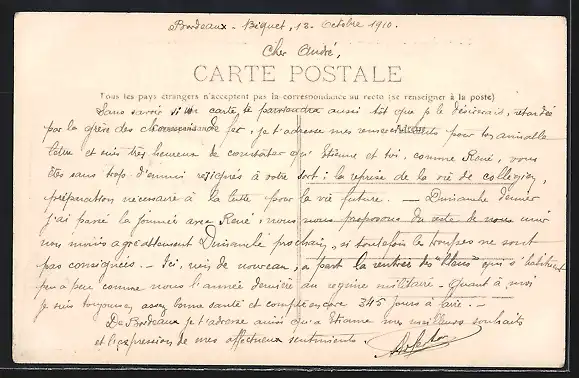 Bordeaux - Biquet, 12 - Octobre 1910.
Cher André,
CARTE POSTALE
Tous les pays étrangers n'acceptent pas la correspondance au recto (se renseigner à la poste)
Sans savoir si ma carte te parviendra aussi tôt que je le désirerais, retardée
par la grève des chemins de fer, je t'adresse mes remerciements pour ton aimable
lettre et suis très heureux de constater qu'Etienne et toi, comme René, vous
êtes sans trop d'ennui résignés à votre sort : la reprise de la vie de collégien,
préparation nécessaire à la lutte pour la vie future. — Dimanche dernier
j'ai passé la journée avec René, nous nous proposons du reste de nous unir
non moins agréablement Dimanche prochain, si toutefois les troupes ne sont
pas consignées. — Ici, rien de nouveau, à part la rentrée des "bleus" qui s'habituent
peu à peu comme nous l'année dernière au régime militaire. — Quant à moi
je suis toujours assez bonne santé et compte encore 345 jours à faire. —
De Bordeaux je t'adresse ainsi qu'à Etienne mes meilleurs souhaits
et l'expression de mes affectueux sentiments.